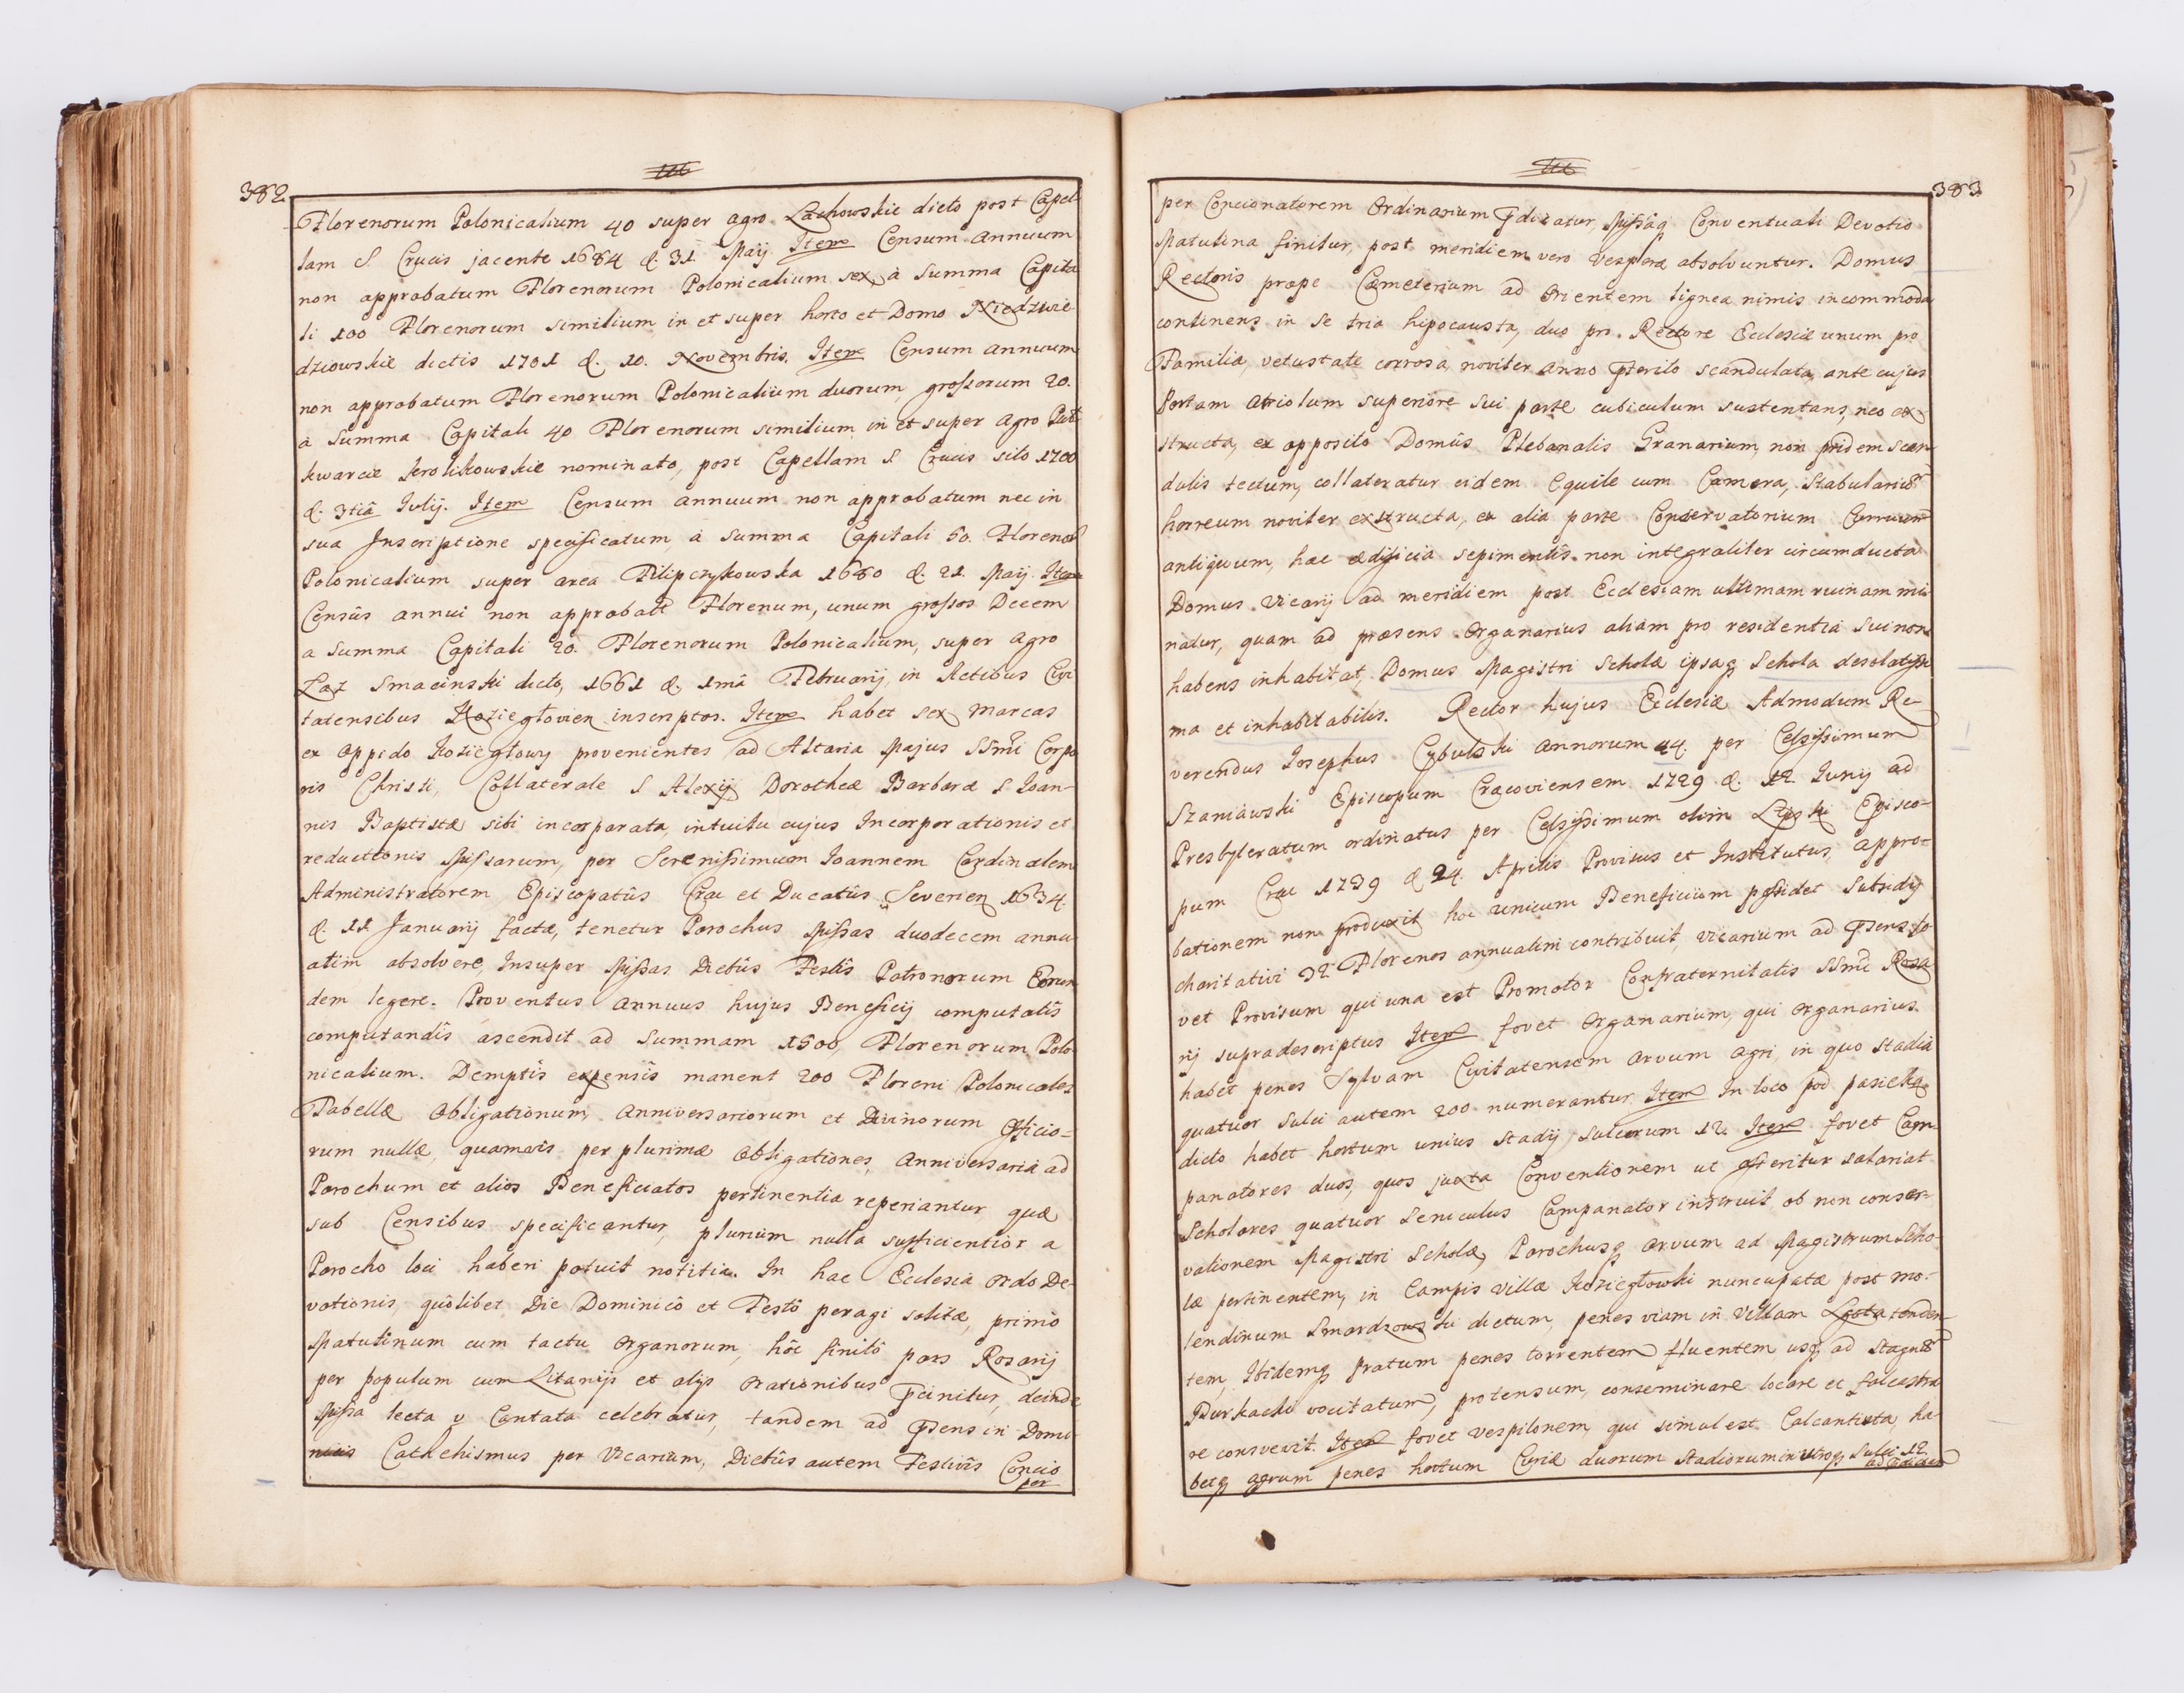 382
Florenorum Polonicalium 40 super agro Lachowskie dicto post Capel-
lam S. Crucis jacente 1684 d. 31 Maij. Item Censum annuum
non approbatum Florenorum Polonicalium sex, à Summa Capita
li 100 Florenorum similium in et super horto et Domo Niedzwie
dziowskie dictis 1701 d. 10. Novembris. Item Censum annuum
non approbatum Florenorum Polonicalium duorum, grossorum 20.
a Summa Capitali 40 Florenorum similium in et super agro Puł
kwarcie Krolikowskie nominato, post Capellam S. Crucis sito 1700
d. 3tiâ Julij. Item Censum annuum non approbatum nec in
sua Inscriptione specificatum, à Summa Capitali 60. Floreno
Polonicalium super area Filipczykowska 1680 d. 21. Maij. Item
Censûs annui non approbati Florenum, unum grossos Decem
a Summa Capitali 20. Florenorum Polonicalium, super agro
Laz Smacinski dicto, 1661 d. 1mâ Februarij, in Actibus Civi
tatensibus Koziegłovien inscriptos. Item habet sex Marcas
ex oppido Koziegłowy provenientes ad Altaria Majus SSmi Corpo
ris Christi, Collaterale S Alexij Dorotheæ Barbaræ S. Joan-
nis Baptistæ sibi incorporata, intuitu cujus Incorporationis et
reductionis Missarum, per Serenissimum Joannem Cardinalem
Administratorem Episcopatûs Crac et Ducatûs Severien 1634
d. 11 Januarij factæ, tenetur Parochus Missas duodecem annu
atim absolvere, Insuper Missas Diebûs Festîs Patronorum Eorun
dem legere. Proventus annuus hujus Beneficij computatîs
computandîs ascendit ad Summam 1500 Florenorum Polo
nicalium. Demptîs expensîs manent 200 Floreni Polonicales
Tabellæ Obligationum, Anniversariorum et Divinorum Officio-
rum nullæ, quamvis per plurimæ Obligationes, Anniversaria ad
Parochum et alios Beneficiatos pertinentia reperiantur, quæ
sub Censibus specificantur, plurium nulla sufficientior a
Parocho loci haberi potuit notitia. In hac Ecclesia ordo De-
votionis, quôlibet Die Dominicô et Festô peragi solitæ, primô
Matutinum cum tactu Organorum, hôc finitô pars Rosarij
per populum cum Litanijs et alijs orationibus pcinitur, deinde
Missa lecta v Cantata celebratur, tandem ad psens in Domi-
nicis Cathehismus per Vicarium, Diebûs autem Festivîs Concio
per
383
per Concionatorem Ordinarium pdicatur, Missâq Conventuali Devotio
Matutina finitur, post meridiem vero Vesperæ absolvuntur. Domus
Rectoris prope Cæmeterium ad Orientem lignea nimis incommoda
continens in se tria hipocausta, duo pro Rectore Ecclesiæ unum pro
Familia, vetustate corrosa, noviter anno pterito scandulata, ante cujus
Portam atriolum superiore sui parte cubiculum sustentans, neo ex
structa, ex opposito Domûs Plebanalis Granarium, non pridem scan-
dulis tectum, collateratur eidem Equile cum Camera, Stabularium
horreum noviter exstructa, ex alia parte Conservatorium Curruum
antiquum, hæc ædificia sepimentîs non integraliter circumducta
Domus Vicarij ad meridiem post Ecclesiam ultimam ruinam mi-
natur, quam ad præsens Organarius aliam pro residentia sui non
habens inhabitat, Domus Magistri Scholæ ipsaq Schola desolatissi
ma et inhabitabilis. Rector hujus Ecclesiæ Admodum Re-
verendus Josephus Cybulski annorum 44. per Celsissimum
Szaniawski Episcopum Cracoviensem 1729 d. 12. Junij ad
Presbyteratum ordinatus per Celsissimum olim Lipski Episco-
pum Crac 1739 d 24. Aprilis Provisus et Institutus, appro-
bationem non produxit hoc unicum Beneficium possidet Subsidij
charitativi 32 Florenos annuatim contribuit, vicarium ad psens fo
vet Provisum qui una est Promotor Confraternitatis SSmi Rosa
rij supradescriptus Item fovet Organarium, qui Organarius
habet penes Sylvam Civitatensem Arvum Agri, in quo stadia
quatuor Sulci autem 200 numerantur. Item In loco pod pasieką
dicto habet hortum unius stadij sulcorum 12. Item fovet Cam-
panatores duos, quos juxta Conventionem ut asseritur salariat
Scholares quatuor Seniculus Campanator instruit ob non conser-
vationem Magistri Scholæ, Parochusq Arvum ad Magistrum Scho-
læ pertinentem, in Campis Villæ Koziegłowki nuncupatæ post mo-
lendinum Smardzowski dictum, penes viam in Villam Lgota tenden-
tem, Ibidemq Pratum penes torrentem fluentem usq ad Stagnu
Burkacki vocitatum, protensum, conseminare locare et falcastra
re consvevit. Item fovet vespilonem, qui simul est Calcantista, ha-
betq agrum penes hortum Curiæ duorum Stadiorum in utroq Sulci 12